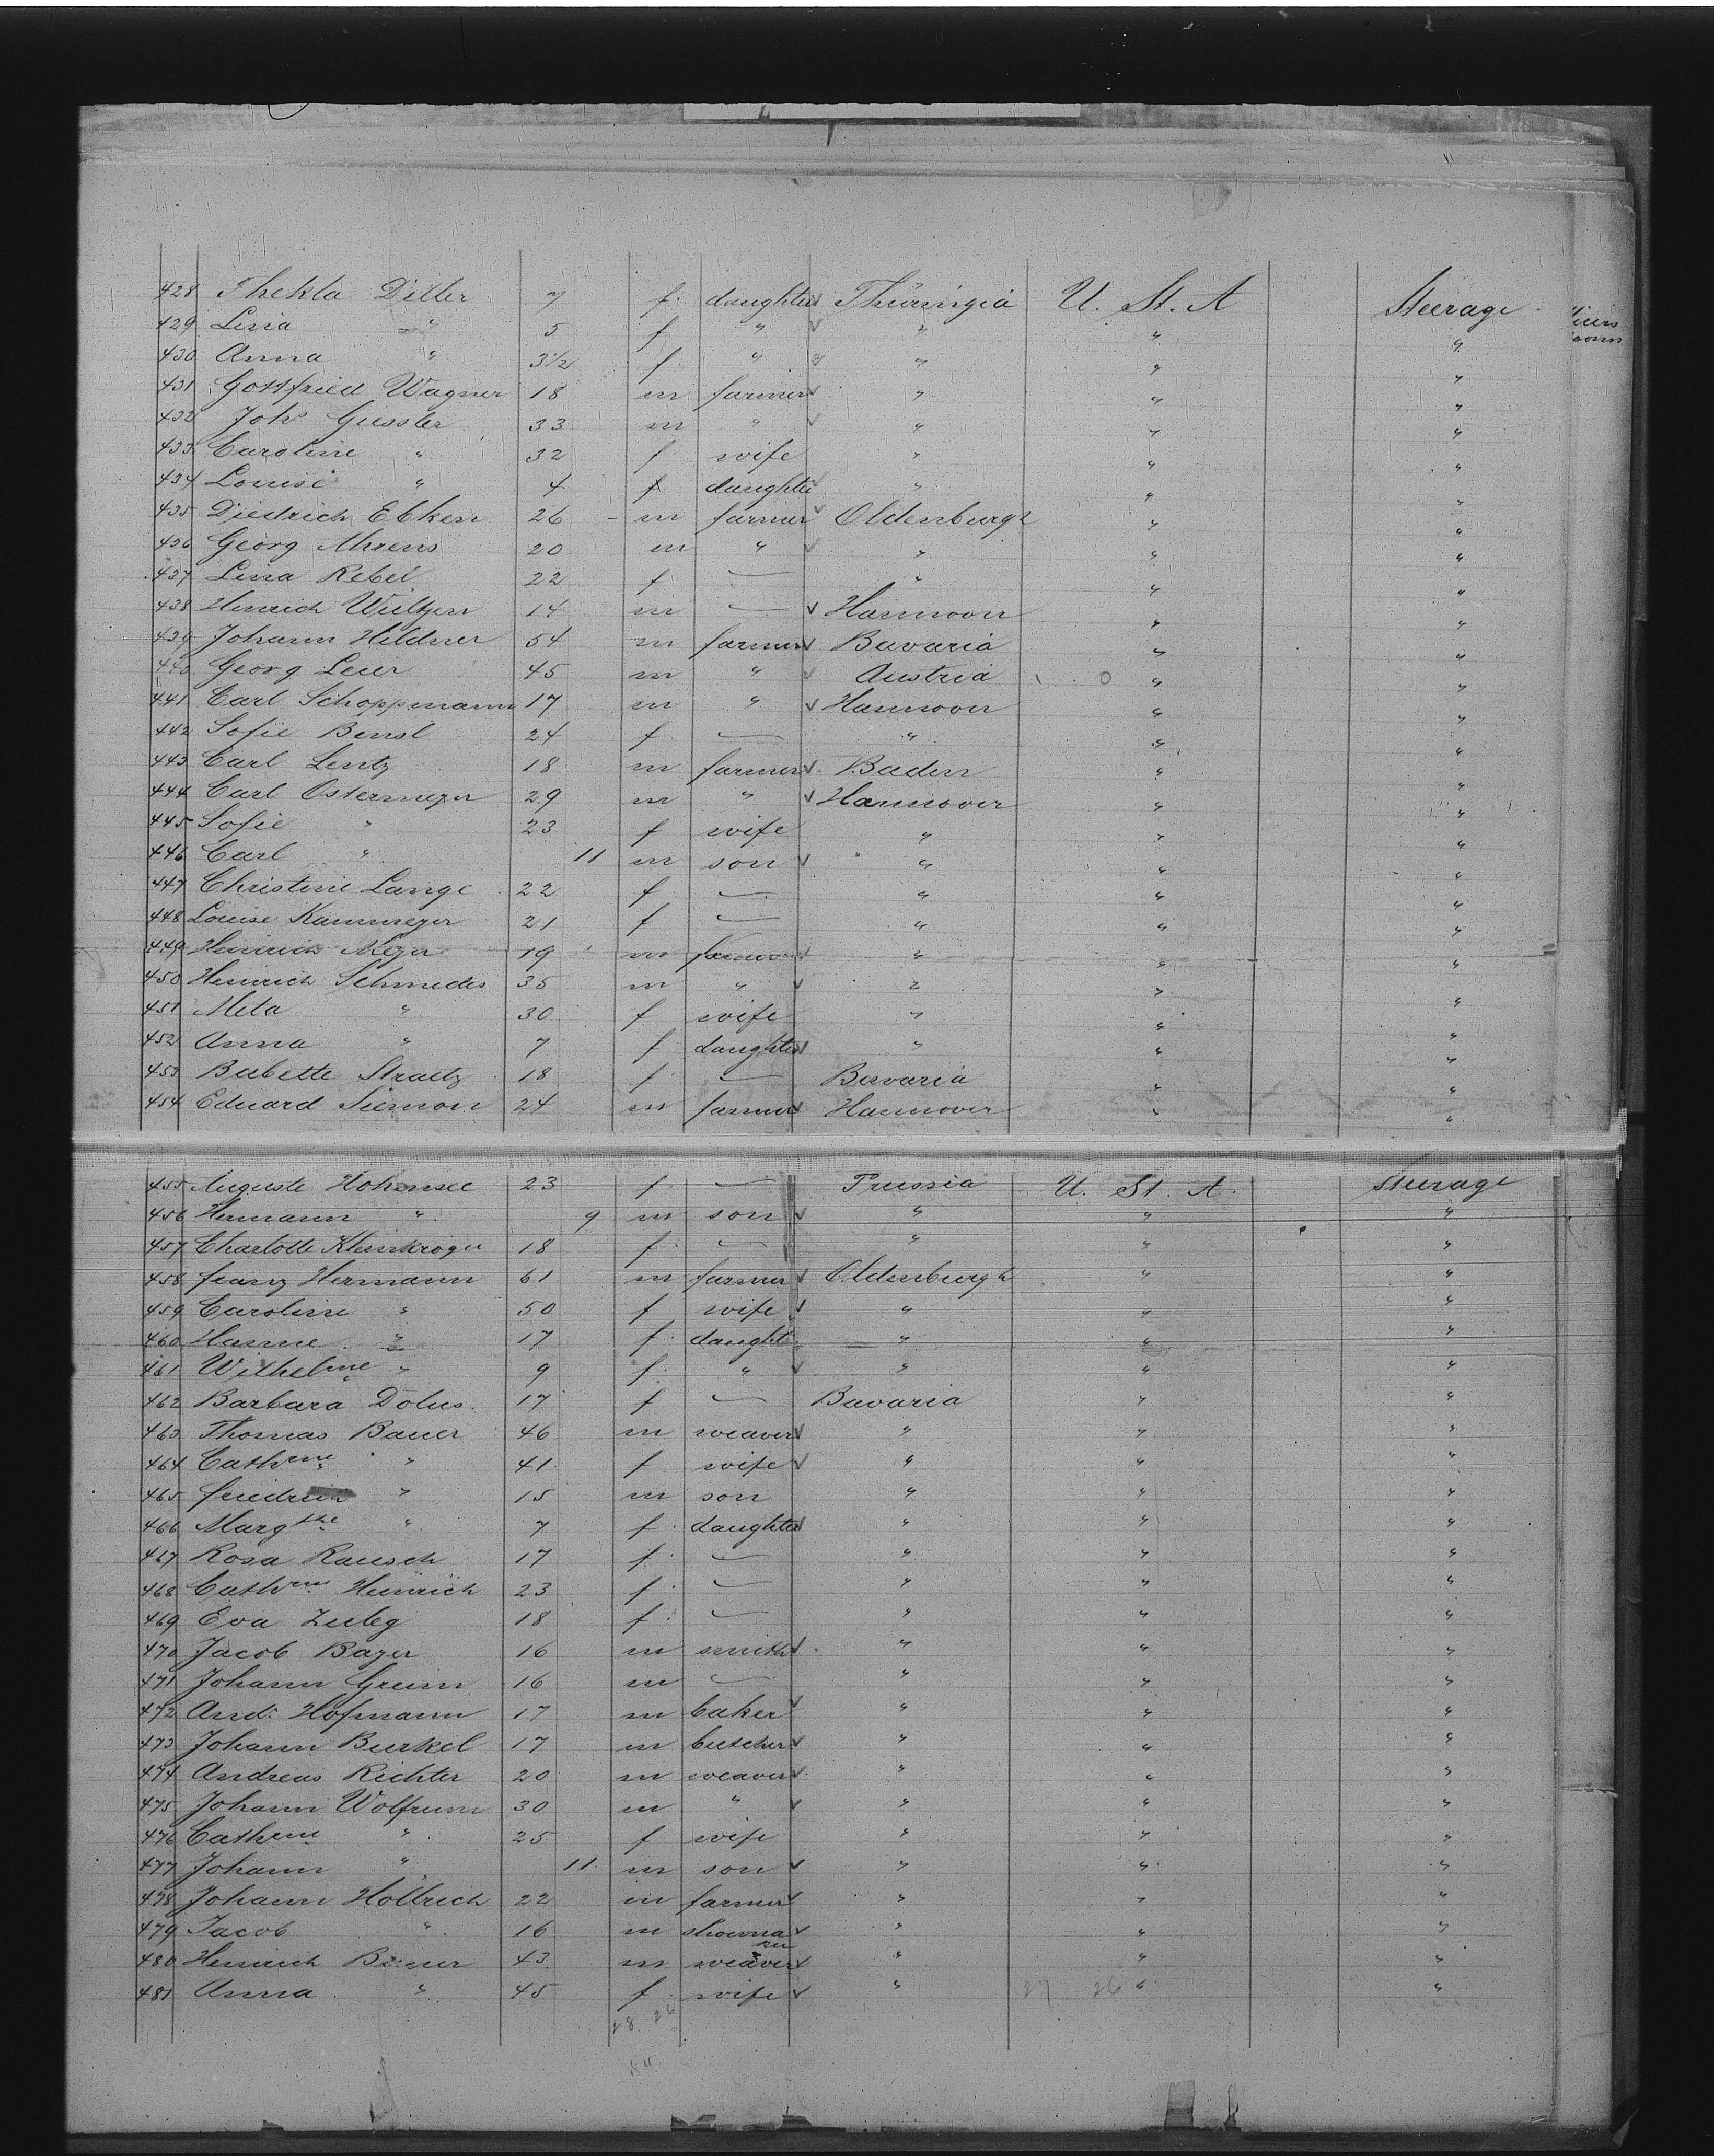 428 Thekla Diller 7 f. daughter Thüringia U. St. A Steerage
429 Lina " 5 f " " " "
430 Anna " 3½ f. " " " "
431 Gottfried Wagner 18 m farmer " " "
432 Joh. Giessler 33 m " " " "
433 Caroline " 32 f wife " " "
434 Louise " 4 f daughter " " "
435 Diedrich Ebken 26 m farmer Oldenburgh " "
436 Georg Ahrens 20 m " " " "
437 Lina Rebel 22 f — " " "
438 Heinrich 14 m — Hannover " "
439 Johann Hildner 54 m farmer Bavaria " "
440 Georg Leier 45 m " Austria " "
441 Carl Schoppmann 17 m " Hannover " "
442 Sofie 24 f — " " "
443 Carl Lentz 18 m farmer Baden " "
444 Carl Ostermeyer 29 m " Hannover " "
445 Sofie " 23 f wife " " "
446 Carl " 11 m son " " "
447 Christine Lange 22 f — " " "
448 Louise 21 f — " " "
449 Heinrich Meyer 19 m farmer " " "
450 Heinrich Schmedes 35 m " " " "
451 Meta " 30 f wife " " "
452 Anna " 7 f daughter " " "
453 Babette 18 f — Bavaria " "
454 Eduard Siemon 24 m farmer Hannover " "
455 Auguste Hohensee 23 f — Prussia U. St. A. Steerage
456 Hermann " 9 m son " " "
457 Charlotte Kleinkröger 18 f — " " "
458 Franz Hermann 61 m farmer Oldenburgh " "
459 Caroline " 50 f wife " " "
460 Hanne " 17 f. daught. " " "
461 Wilhelme " 9 f. " " " "
462 Barbara Dolus 17 f — Bavaria " "
463 Thomas Bauer 46 m weaver " " "
464 Cathrne " 41 f wife " " "
465 Friedrich " 15 m son " " "
466 Margthe " 7 f. daughter " " "
467 Rosa Rausch 17 f. — " " "
468 Cathrne Heinrich 23 f. — " " "
469 Eva 18 f. — " " "
470 Jacob Bayer 16 m smith " " "
471 Johann 16 m — " " "
472 And. Hofmann 17 m baker " " "
473 Johann Burkel 17 m butcher " " "
474 Andreas Richter 20 m weaver " " "
475 Johann Wolfrum 30 m " " " "
476 Cathrne " 25 f wife " " "
477 Johann " 11. m son " " "
478 Johann Hollrich 22 m farmer " " "
479 Jacob " 16 m shoema " " "
ker
480 Heinrich 43 m weaver " " "
481 Anna " 45 f. wife " 27 26 " "
28. 26